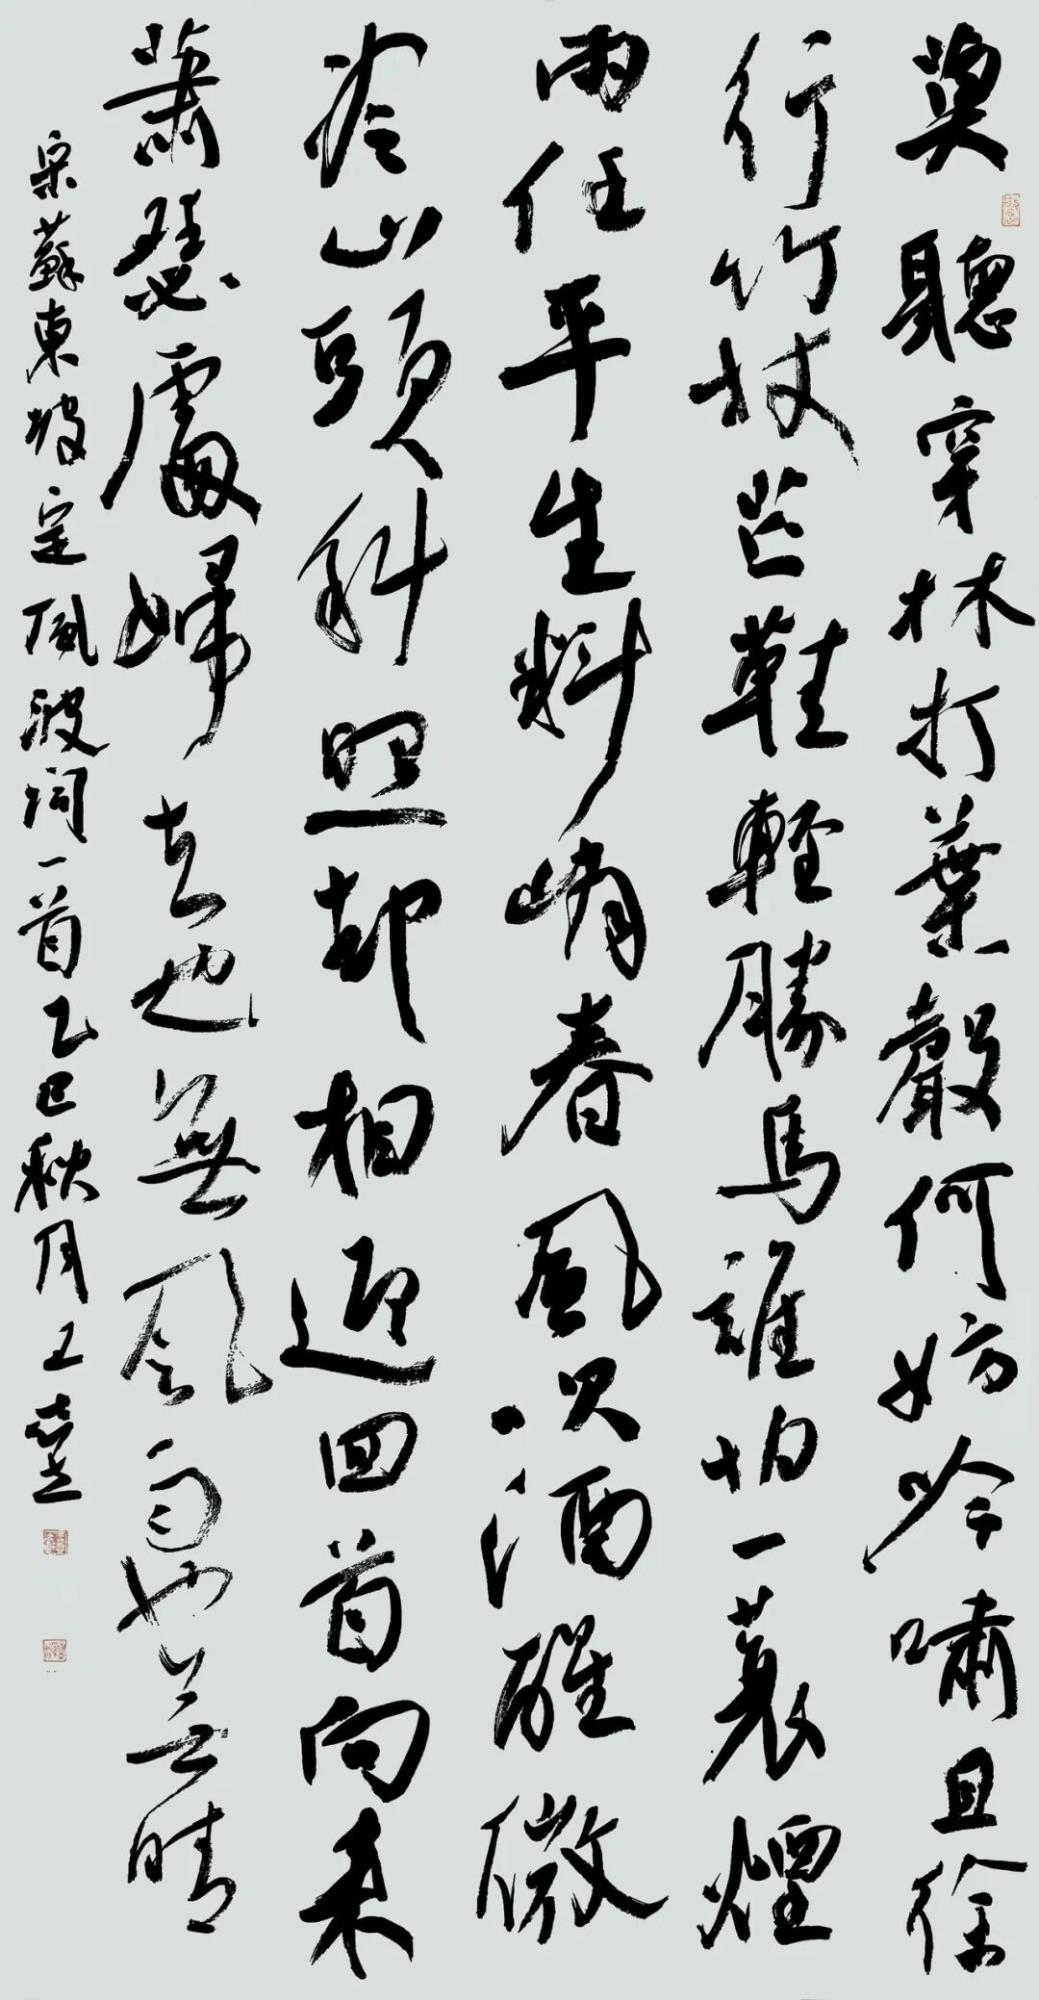 莫聽穿林打葉聲何妨吟嘯且徐
行竹杖芒鞋輕勝馬誰怕一蓑煙
雨任平生料峭春風吹酒醒微
冷山頭斜照却相迎回首向來
蕭瑟處歸去也無風雨也無晴
宋蘇東坡定風波詞一首乙巳秋月王